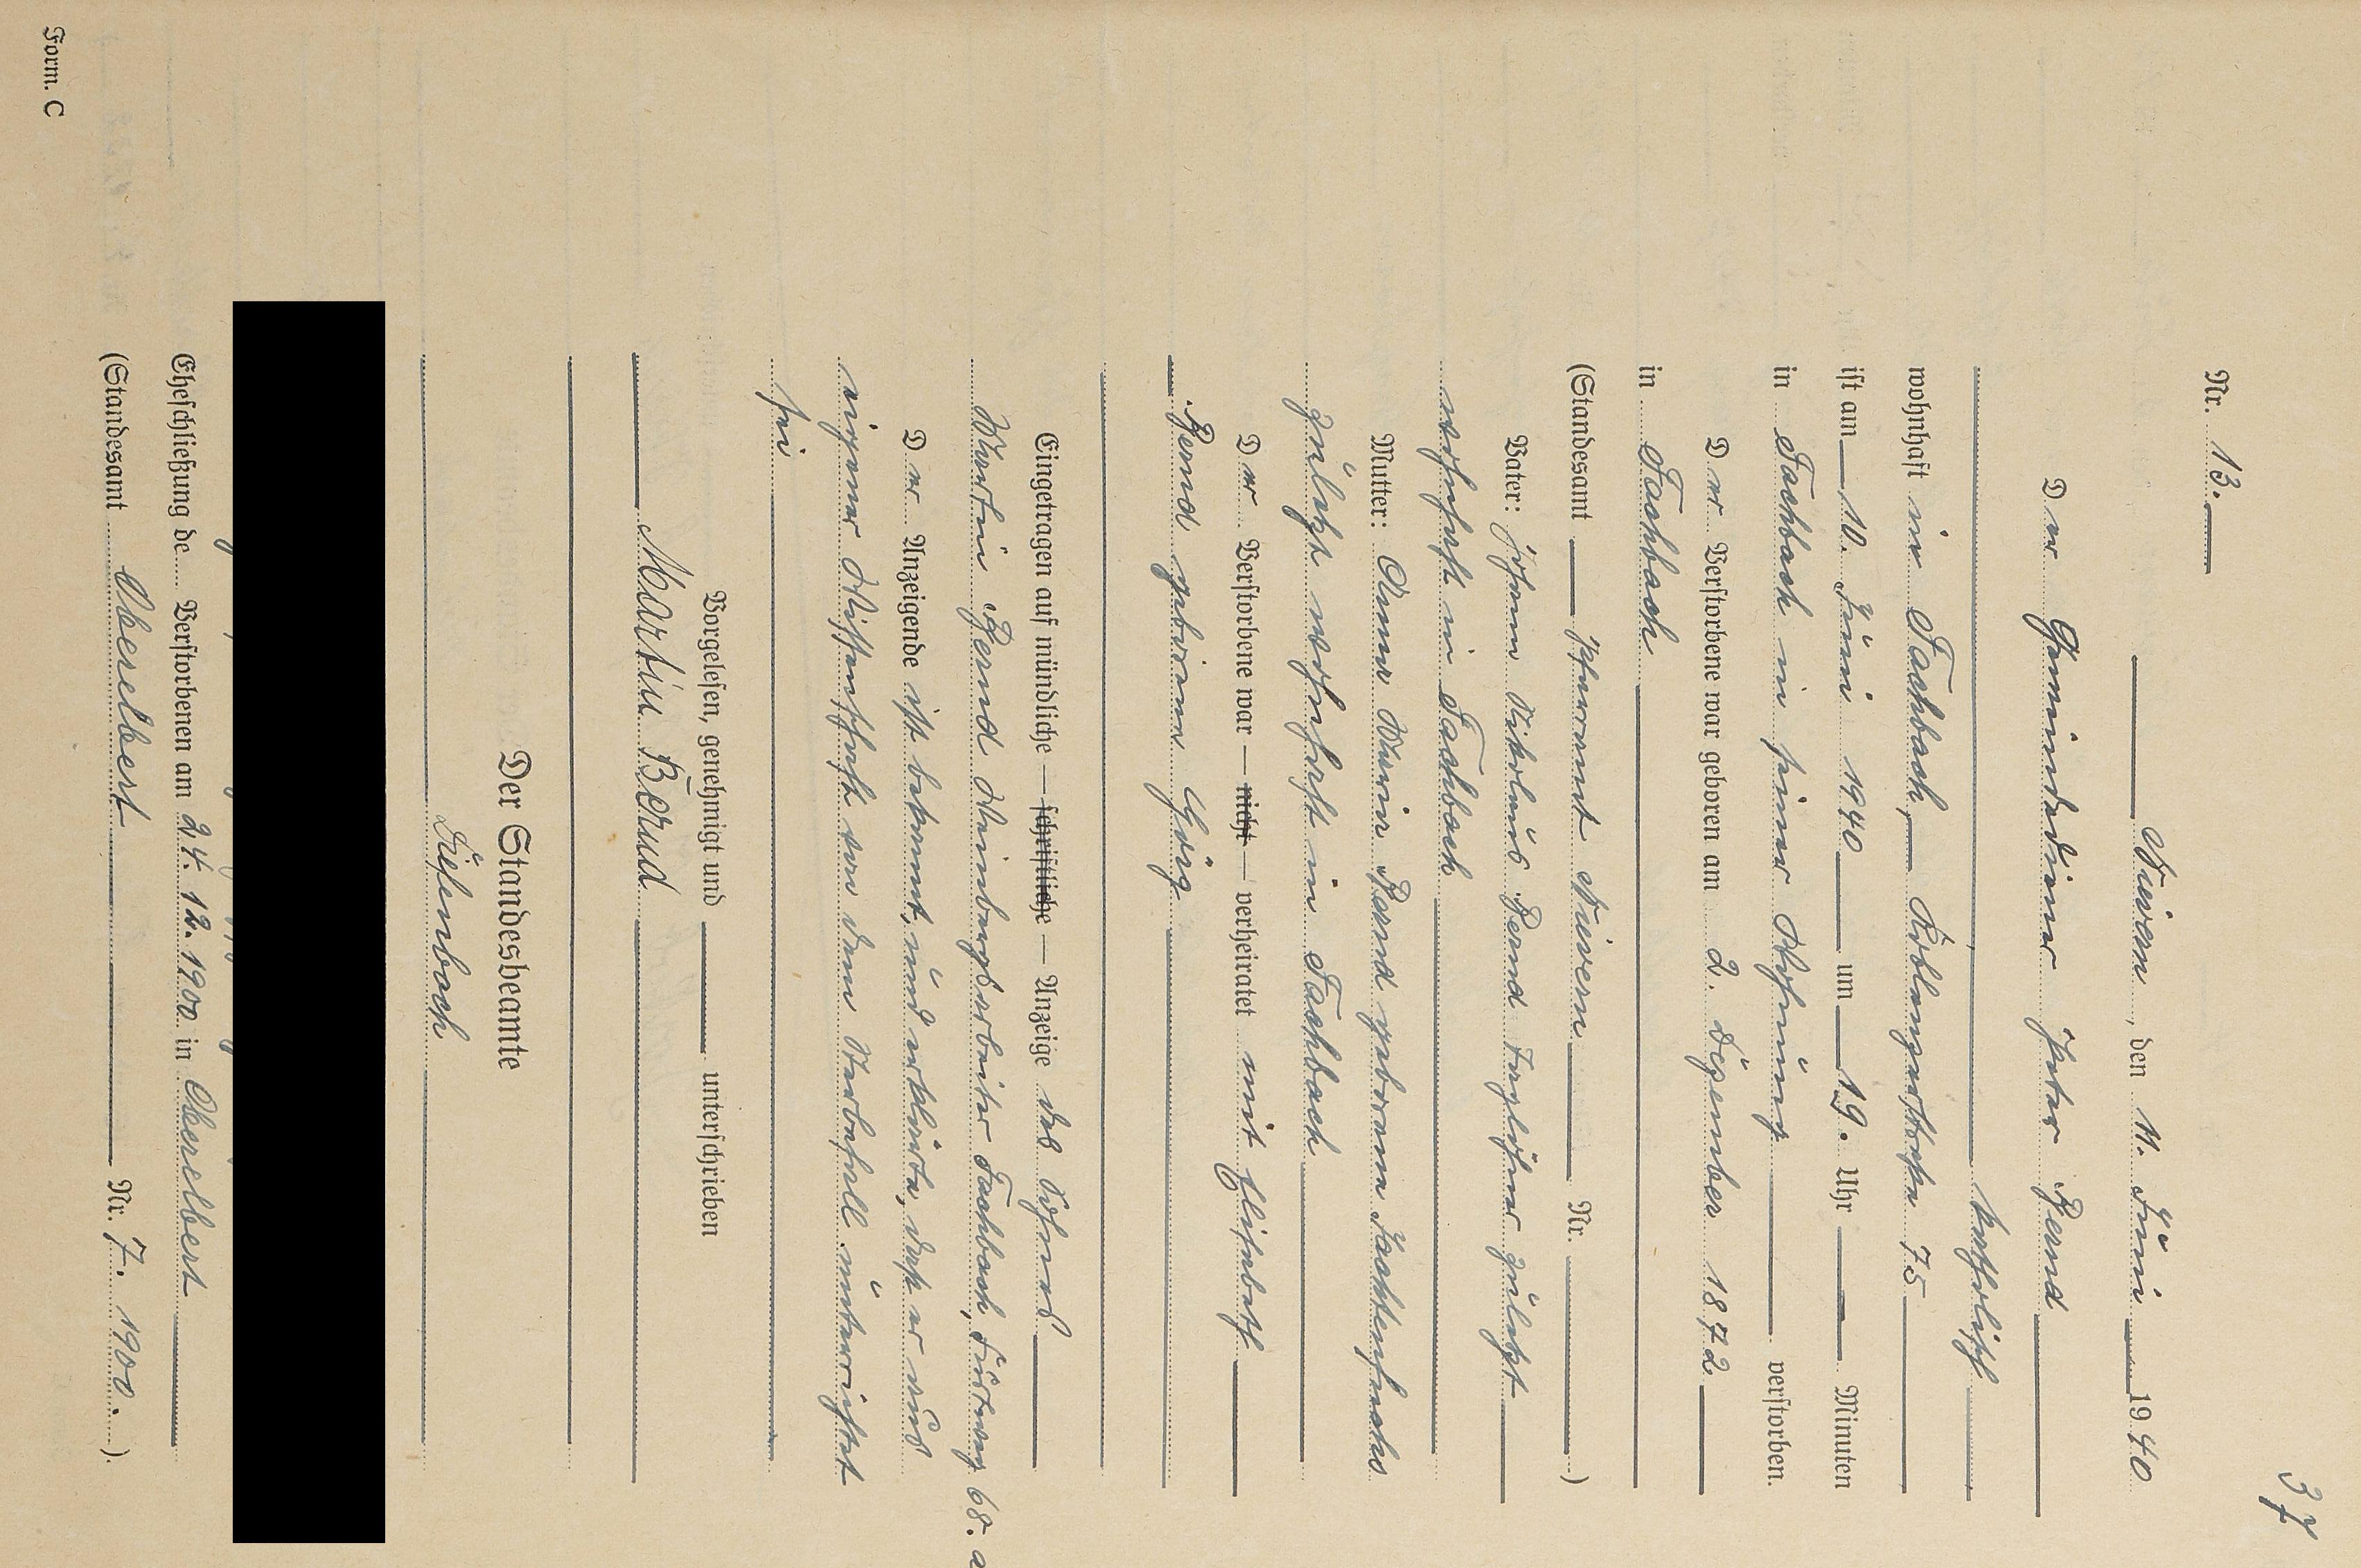 37
Nr. 13.
Nievern, den 11. Juni 1940
Der Gemeindediener Peter Bernd
katholisch
wohnhaft in Fachbach, Koblenzerstraße 75
ist am 10. Juni 1940 um 19. Uhr Minuten
in Fachbach in seiner Wohnung verstorben.
Der Verstorbene war geboren am 2. Dezember 1872
in Fachbach
(Standesamt Pfarramt Nievern Nr. )
Vater: Johann Nikolaus Bernd Taglöhner zuletzt
wohnhaft in Fachbach
Mutter: Anna Maria Bernd geborene
zuletzt wohnhaft in Fachbach
Der Verstorbene war — nicht — verheiratet mit Elisabeth
Bernd geborene
Eingetragen auf mündliche — schriftliche — Anzeige des Sohnes
Martin Bernd Weinbergsarbeiter Fachbach, 68. a
Der Anzeigende ist bekannt, und erklärte, daß er aus
eigener Wissenschaft von dem Sterbefall unterrichtet
sei
Vorgelesen, genehmigt und unterschrieben
Martin Bernd
Der Standesbeamte
Eheschließung de Verstorbenen am 24. 12. 1900 in Oberelbert
(Standesamt Oberelbert Nr. 7. 1900. ).
Form. C